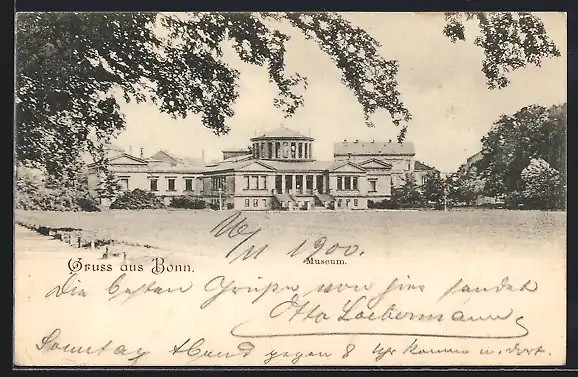 16/11 1900.
Gruss aus Bonn.
Museum.
Die besten Grüße von hier sendet
Otto Loebermann
Sonntag Abend gegen 8 Uhr komme u. dort.